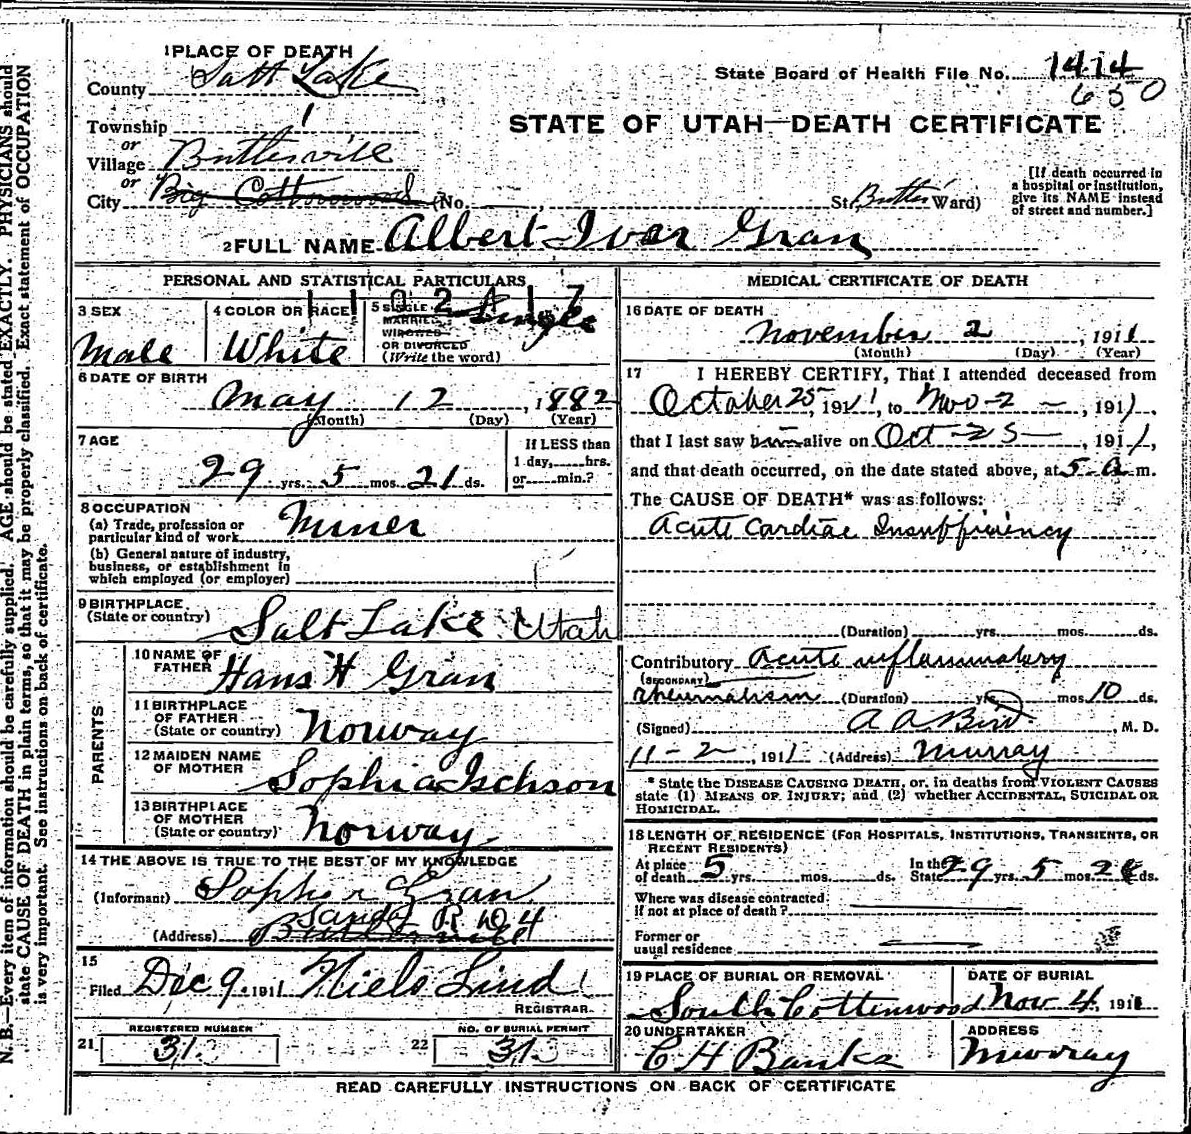 1 PLACE OF DEATH
County Salt Lake
State Board of Health File No. 1414
650
Township 1
or
Village Butlerville
or
City Big Cottonwood (No. St. Butler Ward)
STATE OF UTAH—DEATH CERTIFICATE
[If death occurred in
a hospital or institution,
give its NAME instead
of street and number.]
2 FULL NAME Albert Iver Gran
PERSONAL AND STATISTICAL PARTICULARS
3 SEX
Male
4 COLOR OR RACE
White
5 SINGLE
MARRIED
WIDOWED
OR DIVORCED
(Write the word)
Single
6 DATE OF BIRTH
May 12, 1882
(Month) (Day) (Year)
7 AGE
29 yrs. 5 mos. 21 ds.
If LESS than
1 day, hrs.
or min.?
8 OCCUPATION
(a) Trade, profession or
particular kind of work Miner
(b) General nature of industry,
business, or establishment in
which employed (or employer)
9 BIRTHPLACE
(State or country) Salt Lake Utah
PARENTS
10 NAME OF
FATHER Hans H Gran
11 BIRTHPLACE
OF FATHER
(State or country) Norway
12 MAIDEN NAME
OF MOTHER Sophia Ischson
13 BIRTHPLACE
OF MOTHER
(State or country) Norway
14 THE ABOVE IS TRUE TO THE BEST OF MY KNOWLEDGE
(Informant) Sophia Gran
Sandy R D 4
(Address)
15
Filed Dec 9, 1911 Niels Lind
REGISTRAR.
REGISTERED NUMBER
21 31
NO. OF BURIAL PERMIT
22 31
MEDICAL CERTIFICATE OF DEATH
16 DATE OF DEATH
November 2, 1911
(Month) (Day) (Year)
17 I HEREBY CERTIFY, That I attended deceased from
October 25, 1911, to Nov-2-, 1911,
that I last saw him alive on Oct-25-, 1911,
and that death occurred, on the date stated above, at 5 a m.
The CAUSE OF DEATH* was as follows:
Acute Cardiac Insufficiency
(Duration) yrs. mos. ds.
Contributory Acute inflammatory
(SECONDARY)
rheumatism (Duration) yrs. mos. 10 ds.
(Signed) A A Bird, M. D.
11-2, 1911 (Address) Murray
* State the DISEASE CAUSING DEATH, or, in deaths from VIOLENT CAUSES
state (1) MEANS OF INJURY; and (2) whether ACCIDENTAL, SUICIDAL OR
HOMICIDAL.
18 LENGTH OF RESIDENCE (FOR HOSPITALS, INSTITUTIONS, TRANSIENTS, OR
RECENT RESIDENTS)
At place
of death 5 yrs. mos. ds.
In the
State 29 yrs. 5 mos. 21 ds.
Where was disease contracted
if not at place of death?
Former or
usual residence
19 PLACE OF BURIAL OR REMOVAL
South Cottonwood
DATE OF BURIAL
Nov 4, 1911
20 UNDERTAKER
C H Banks
ADDRESS
Murray
READ CAREFULLY INSTRUCTIONS ON BACK OF CERTIFICATE
N. B.—Every item of information should be carefully supplied. AGE should be stated EXACTLY. PHYSICIANS should
state CAUSE OF DEATH in plain terms, so that it may be properly classified. Exact statement of OCCUPATION
is very important. See instructions on back of certificate.